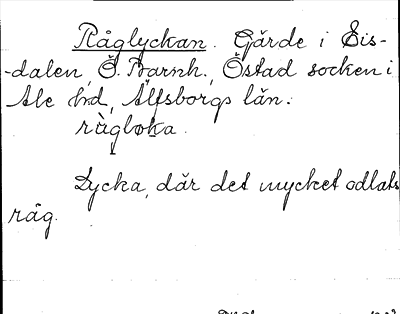 Råglyckan. Gärde i Sis-
-dalen, Ö. Barnh., Östad socken i
Ale hd, Älfsborgs län.
rågloka.
Lycka, där det mycket odlats
råg.